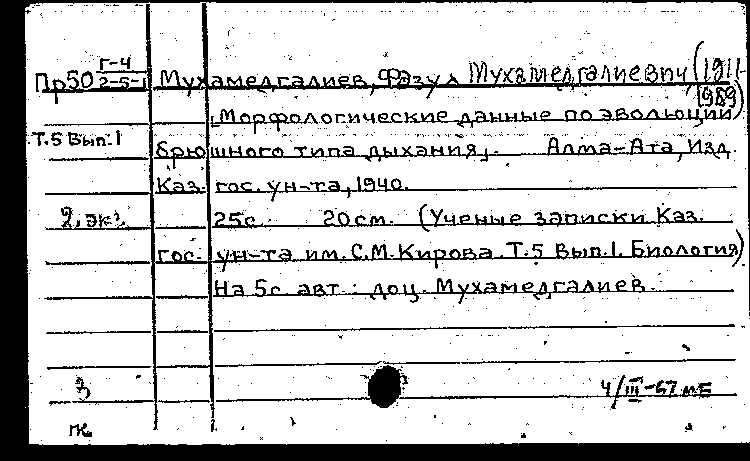 Пр50 Г-4 2-5-1 Мухамедгалиев, Фазул Мухамедгалиевич (1911-1989)
Морфологические данные по эволюции
Т.5 Вып.1 брюшного типа дыхания,. Алма-Ата, Изд.
Каз. гос. ун-та, 1940.
2, экз. 25с. 20см. (Ученые записки Каз.
гос. ун-та им. С.М. Кирова. Т.5 Вып.1. Биология)
На 5с авт.: доц. Мухамедгалиев.
4/III-67